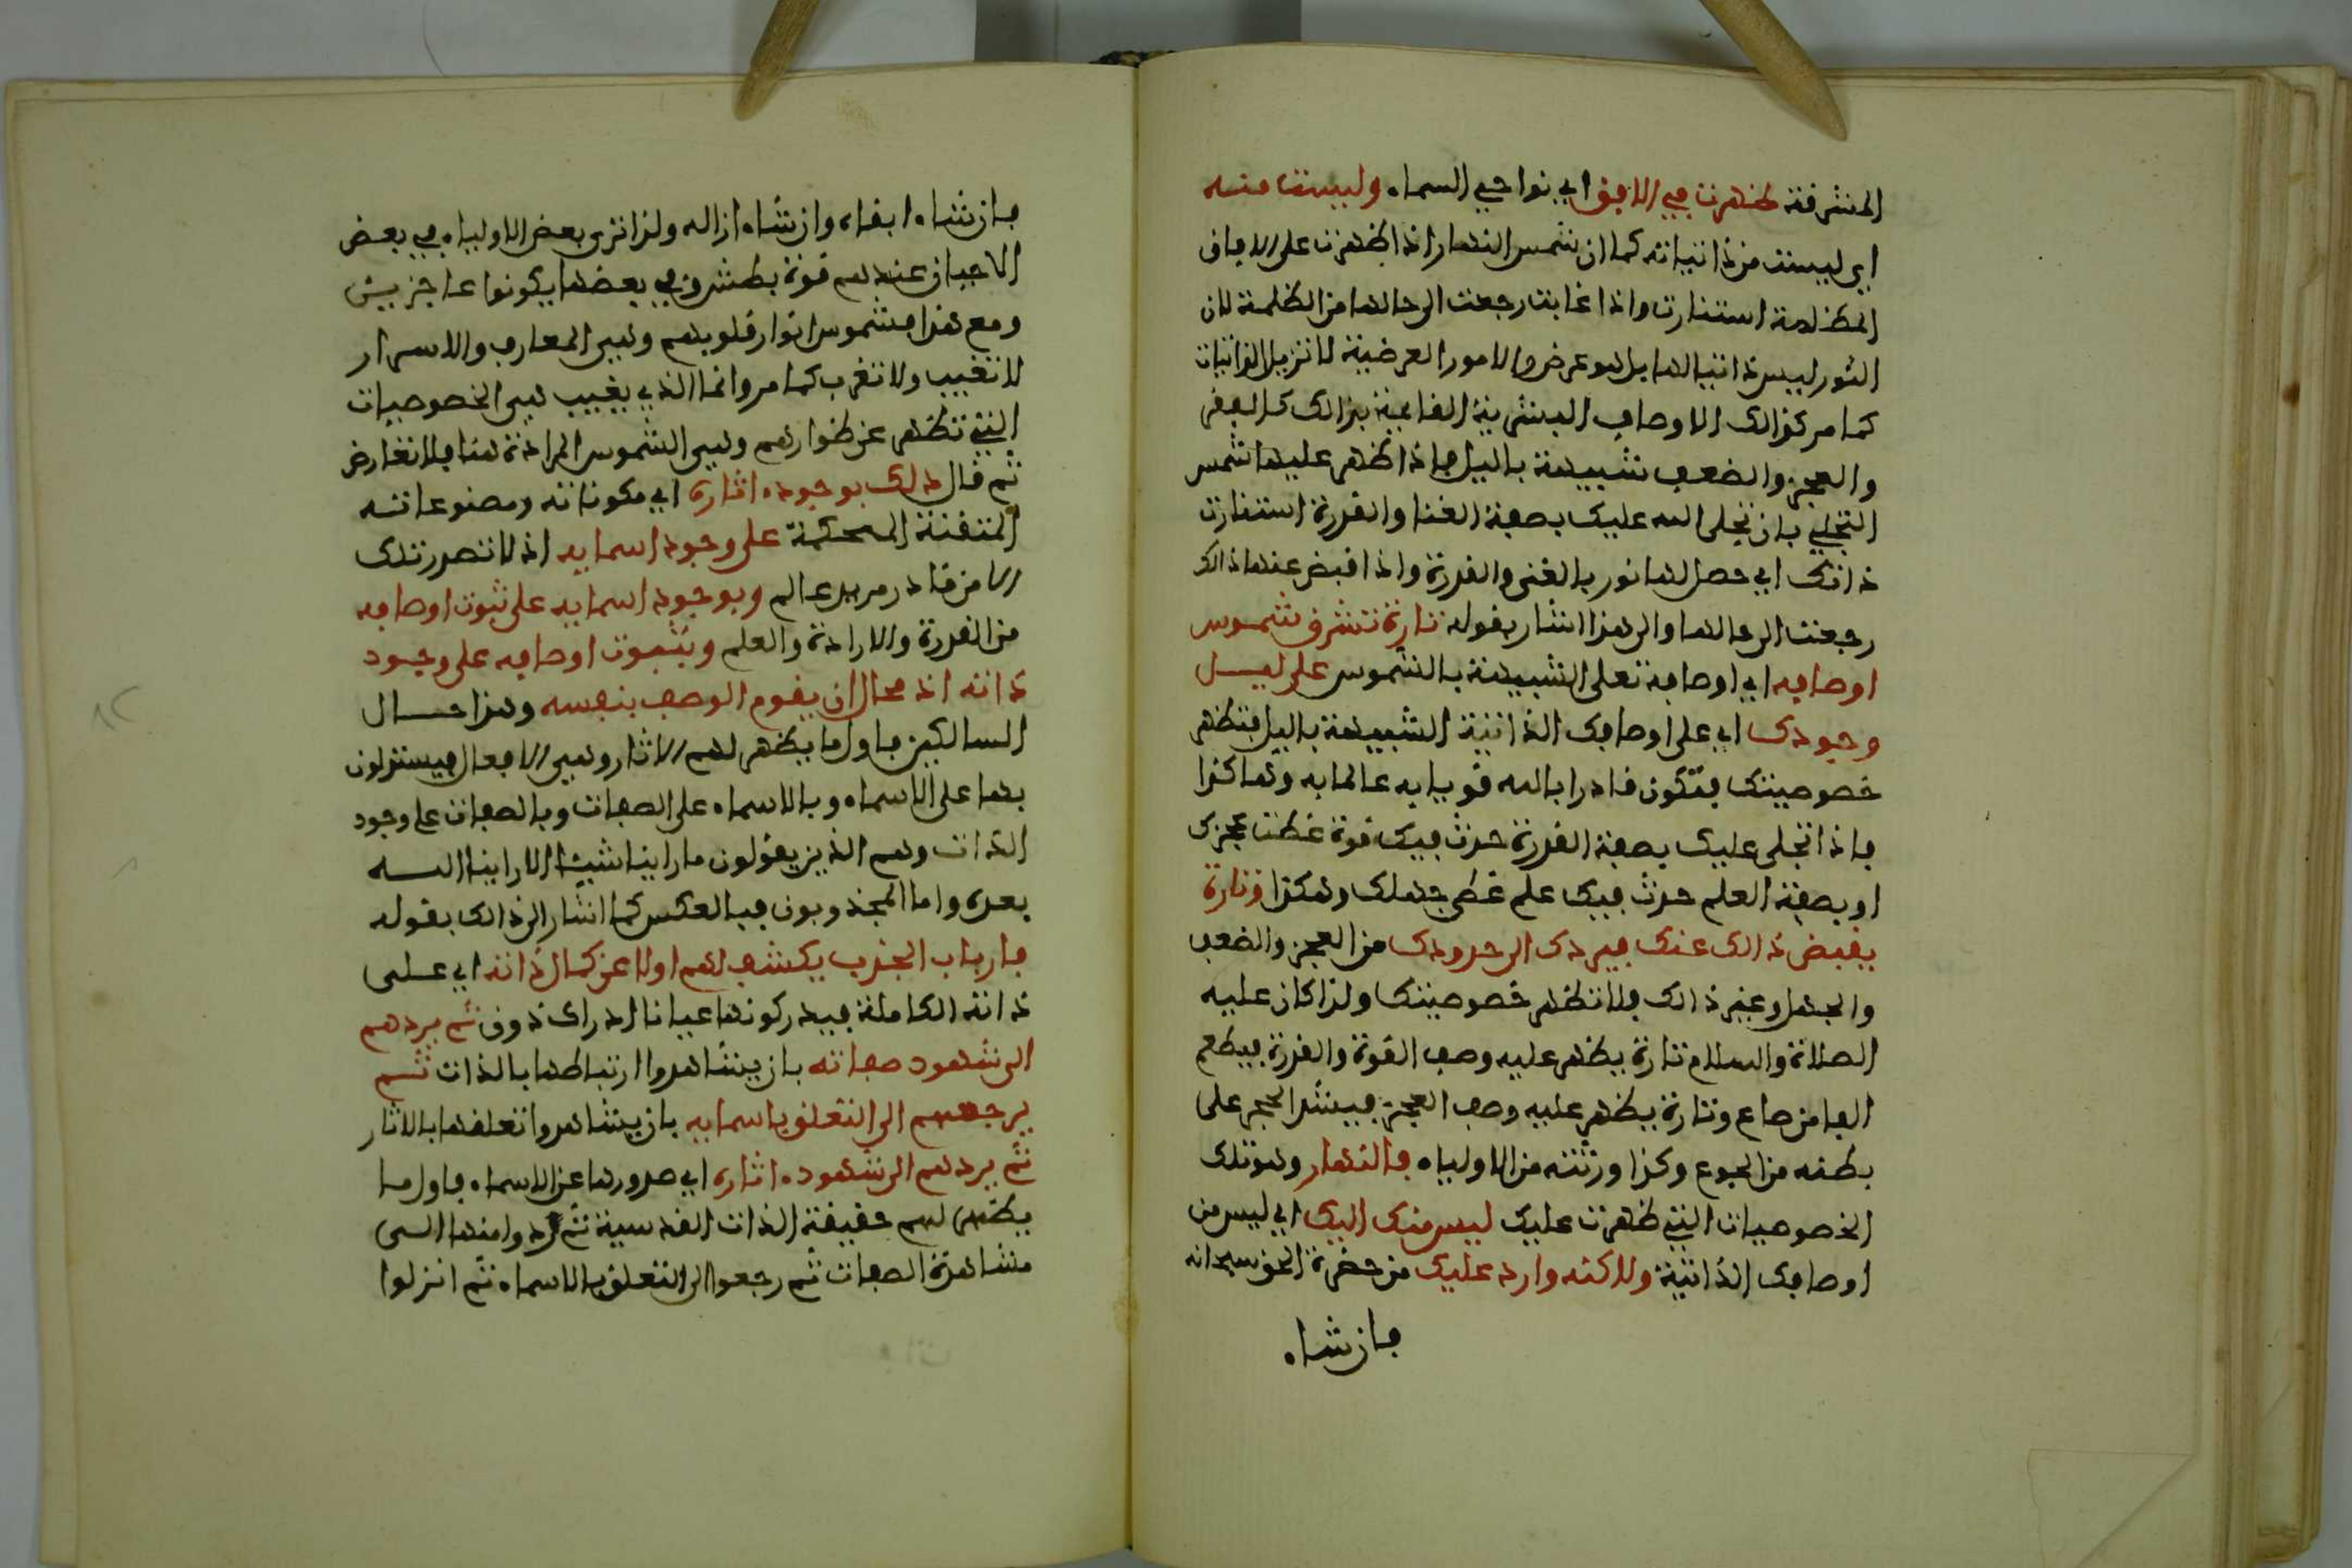 المشرقة ظهرت في الافق اي نواحي السماء وليست منه
اي ليست من ذاتياته كما ان شمس النهار اذا ظهرت على الافاق
المظلمة استنارت واذا غابت رجعت الى حالها من الظلمة لان
النور ليس ذاتيا لها بل هو عرض والامور العرضية لا تزيل الذاتيات
كما مر كذالك الاوصاف البشرية القايمة بذالك كالفقر
والعجز والضعف شبيهة باليل فاذا ظهر عليها شمس
التجلي بان تجلى الله عليك بصفة الغنا والقدرة استنارت
ذاتك اي حصل لها نور بالغنى والقدرة واذا قبض عنها ذالك
رجعت الى حالها والى هذا اشار بقوله تارة تشرق شموس
اوصافه اي اوصافه تعلى الشبيهة بالشموس على ليل
وجودك اي على اوصافك الذاتية الشبيهة باليل فتظهر
خصوصيتك فتكون قادرا بالله قويا به عالما به وهاكذا
فاذا تجلى عليك بصفة القدرة حدث فيك قوة غطت عجزك
او بصفة العلم حدث فيك علم غطى جهلك وهكذا وتارة
يقبض ذالك عنك فيردك الى حدودك من العجز والضعف
والجهل وغير ذالك فلا تظهر خصوصيتك ولذا كان عليه
الصلاة والسلام تارة يظهر عليه وصف القوة والقدرة فيطعم
الفا من صاع وتارة يظهر عليه وصف العجز فيشد الحجر على
بطنه من الجوع وكذا ورثته من الاولياء فالنهار وهو تلك
الخصوصيات التي ظهرت عليك ليس منك اليك اي ليس من
اوصافك الذاتية ولاكنه وارد عليك من حضرة الحق سبحانه
فان شاء
فان شاء ابقاه وان شاء ازاله ولذا ترى بعض الاولياء في بعض
الاحيان عندهم قوة بطش وفي بعضها يكونوا عاجزين
ومع هذا فشموس انوار قلوبهم وهي المعارف والاسرار
لا تغيب ولا تغرب كما مر وانما الذي يغيب هي الخصوصيات
التي تظهر عن ظواهرهم وهي الشموس المرادة هنا فلا تعارض
ثم قال دلك بوجوده اثاره اي مكوناته ومصنوعاته
المتقنة المحكمة على وجود اسمايه اذ لا تصدر تلك
الا من قادر مريد عالم وبوجود اسمايه على ثبوت اوصافه
من القدرة والارادة والعلم وبثبوت اوصافه على وجود
ذاته اذ محال ان يقوم الوصف بنفسه وهذا حال
السالكين فاول ما يظهر لهم الاثار وهي الافعال فيستدلون
بها على الاسماء وبالاسماء على الصفات وبالصفات على وجود
الذات وهم الذين يقولون ما راينا شيئا الا راينا الله
بعده واما المجذوبون فبالعكس كما اشار الى ذالك بقوله
فارباب الجذب يكشف لهم اولا عن كمال ذاته اي على
ذاته الكاملة فيدركونها عيانا ادراك ذوق ثم يردهم
الى شهود صفاته بان يشاهدوا ارتباطها بالذات ثم
يرجعهم الى التعلق باسمايه بان يشاهدوا تعلقها بالاثار
ثم يردهم الى شهوده اثاره اي صدورها عن الاسماء فاول ما
يظهر لهم حقيقة الذات القدسية ثم ردوا منها الى
مشاهدة الصفات ثم رجعوا الى التعلق بالاسماء ثم انزلوا